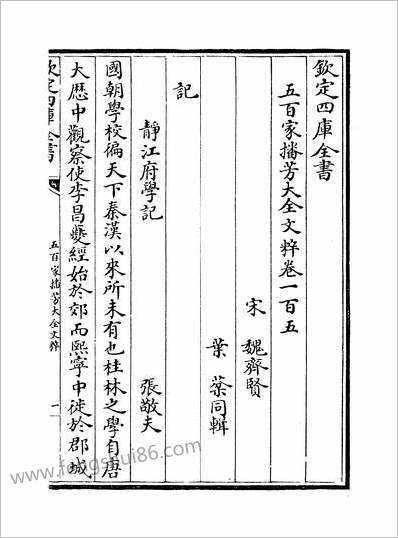 欽定四庫全書
五百家播芳大全文粹卷一百五
宋 魏齊賢
葉 棻同輯
記
靜江府學記 張敬夫
國朝學校徧天下秦漢以來所未有也桂林之學自唐
大歴中觀察使李昌夔經始於郊而熙寧中徙於郡城
欽定四庫全書
五百家播芳大全文粹
一
www.fengshui86.com